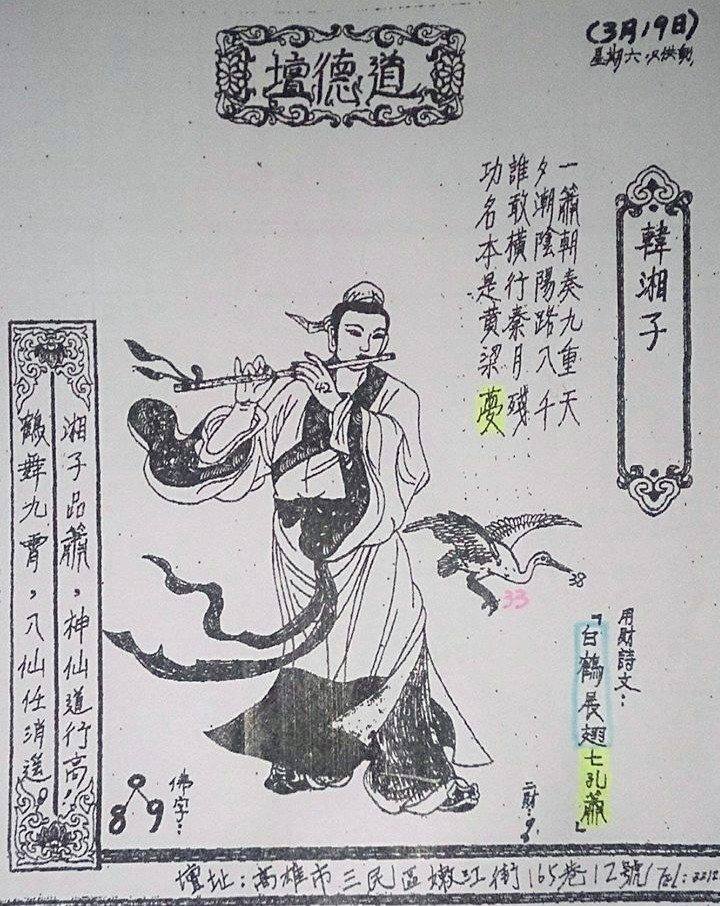 (3月19日)
道德壇
韓湘子
一簫朝奏九重天
夕潮陰陽路八千
誰敢橫行秦月殘
功名本是黃梁夢
湘子品簫，神仙道行高！
鶴舞九霄，八仙任消遙。
38
33
用財詩文：
『白鶴展翅七孔簫』
二財：9
佛字：
0
8 9
壇址：高雄市三民區嫩江街165巷12號